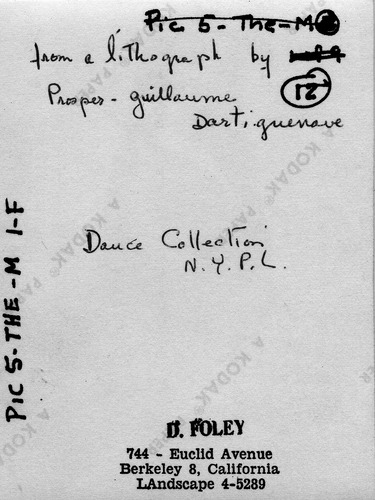 Pic 5-The-M
from a lithograph by
12
Prosper-guillaume
Dartiguenave
Dance Collection
N.Y.P.L.
PIC 5-THE-M 1-F
A KODAK PAPER
D. FOLEY
744 - Euclid Avenue
Berkeley 8, California
LAndscape 4-5289